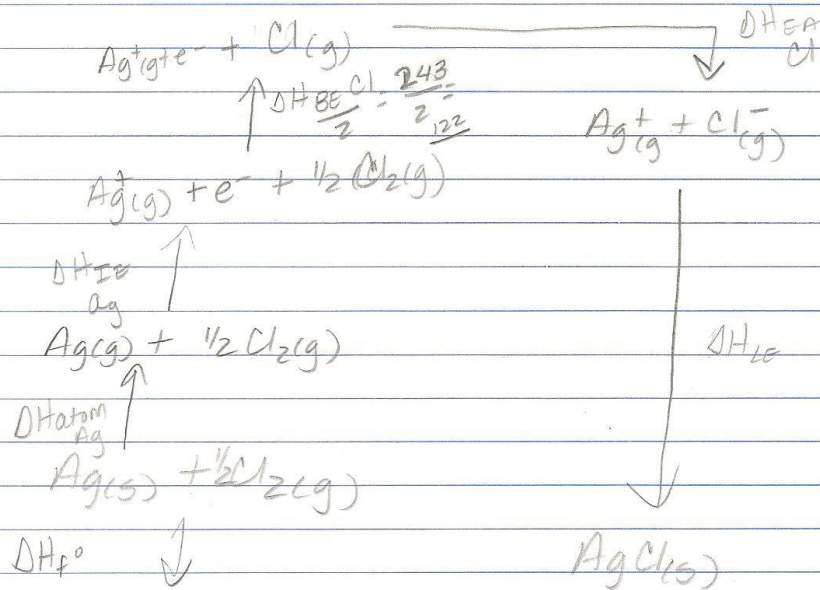 Ag⁺(g) + e⁻ + Cl(g)
DH EA
Cl
DH BE Cl/2 = 243/2 = 122
Ag⁺(g + Cl⁻(g)
Ag⁺(g) + e⁻ + 1/2 Cl₂(g)
DH IE
ag
Ag(g) + 1/2 Cl₂(g)
DH LE
DHatom
Ag
Ag(s) + 1/2 Cl₂(g)
DHf°
AgCl(s)